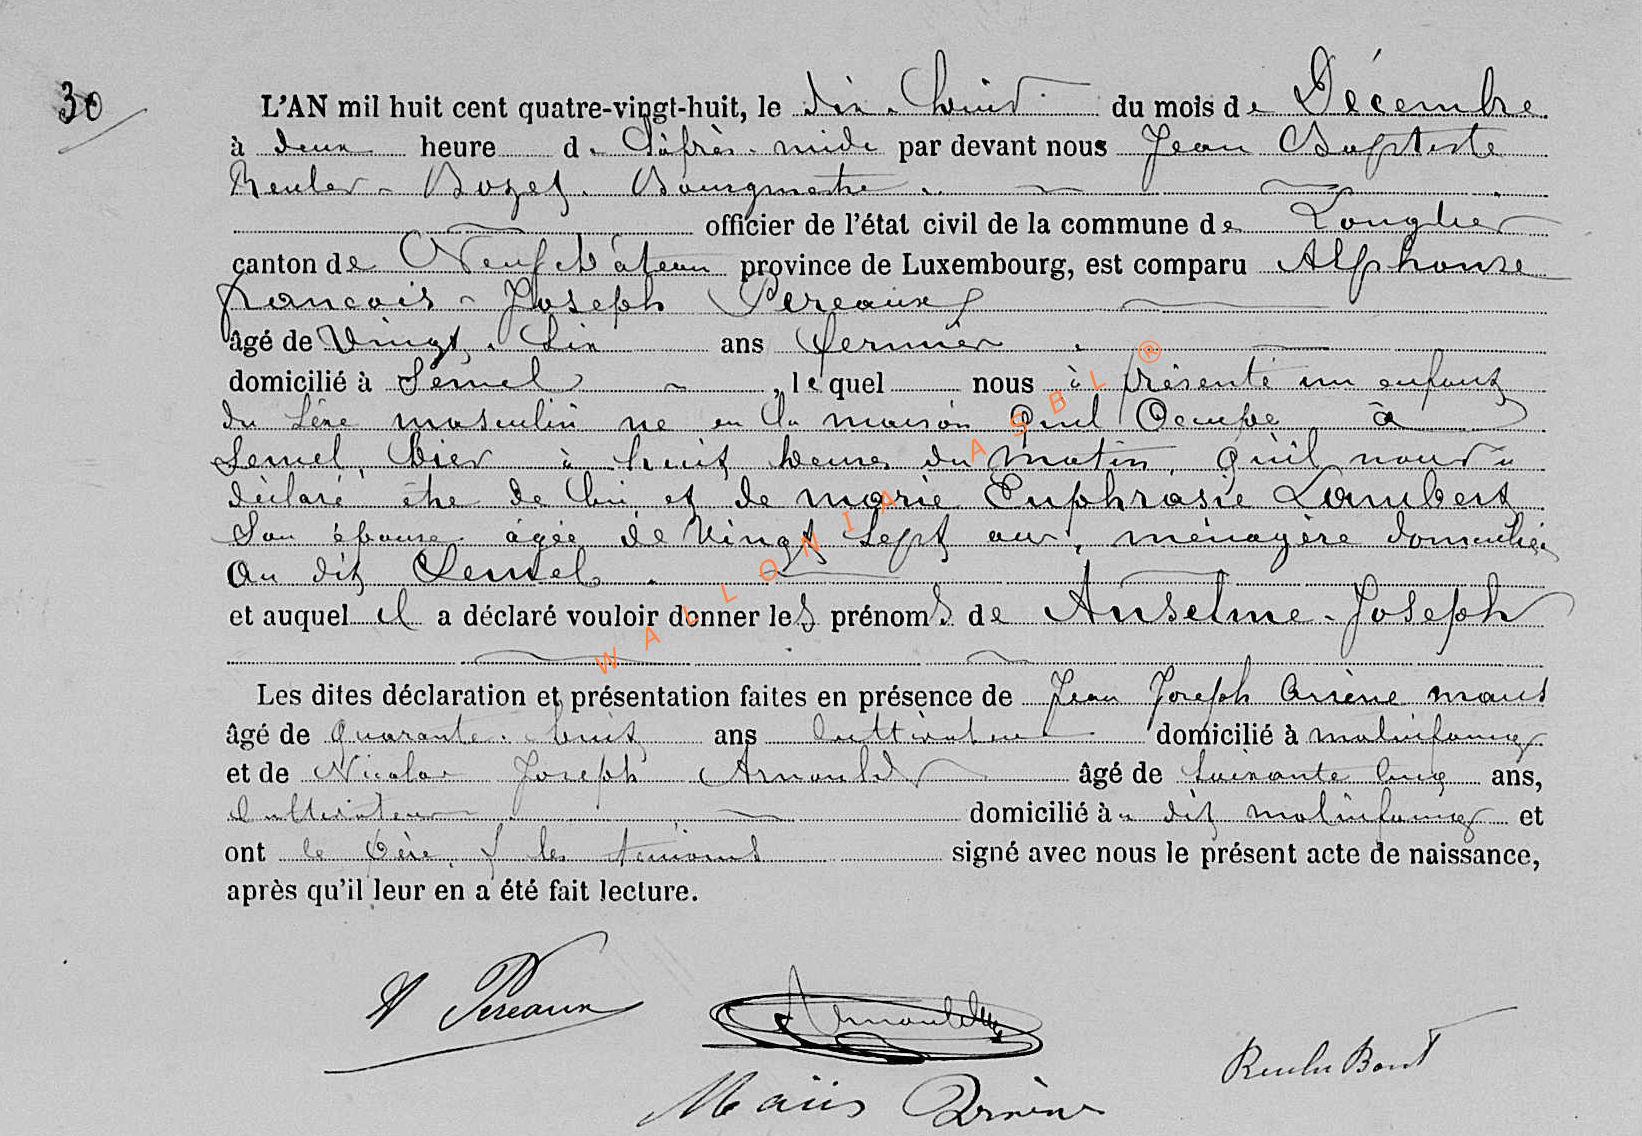 30
L'AN mil huit cent quatre-vingt-huit, le dix-huit du mois de Décembre
à deux heure de l'après-midi par devant nous Jean Baptiste
Reuler-Bozet Bourgmestre
officier de l'état civil de la commune de Longlier
canton de Neufchâteau province de Luxembourg, est comparu Alphonse
francois-Joseph Pereaux
âgé de Vingt-Six ans fermier
domicilié à Semel, lequel nous à présenté un enfant
du sexe masculin né en la maison quil Occupe à
Semel, hier à huit heures du matin, qu'il nous a
déclaré être de lui et de marie Euphrasie Lambert
Son épouse agée de Vingt Sept ans, ménagère domiciliée
Au dit Semel.
et auquel il a déclaré vouloir donner les prénoms de Anselme-Joseph
Les dites déclaration et présentation faites en présence de Jean Joseph Arsène maus
âgé de quarante-huit ans Cultivateur domicilié à molinfaing
et de Nicolas Joseph Arnould âgé de Soixante Cinq ans,
Cultivateur domicilié au dit molinfaing et
ont le Père, & les témoins signé avec nous le présent acte de naissance,
après qu'il leur en a été fait lecture.
A Pereaux
Arnould
Maüs Arsène
WALLONIA ASBL ®